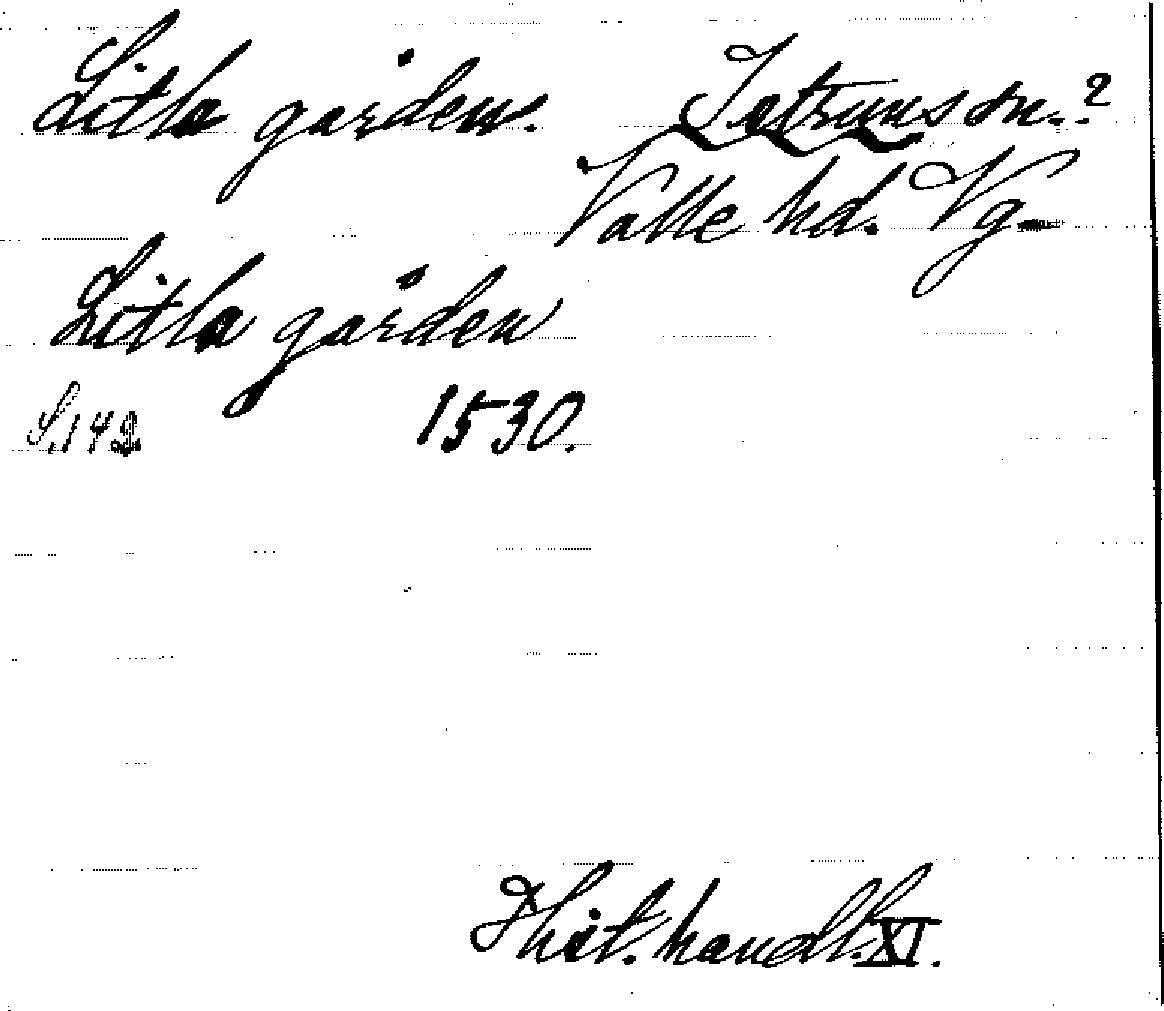 Litla gården. Istrums sn.?
Valle hd. Vg
Litla gården
S.142 1530.
Hist. handl. XI.